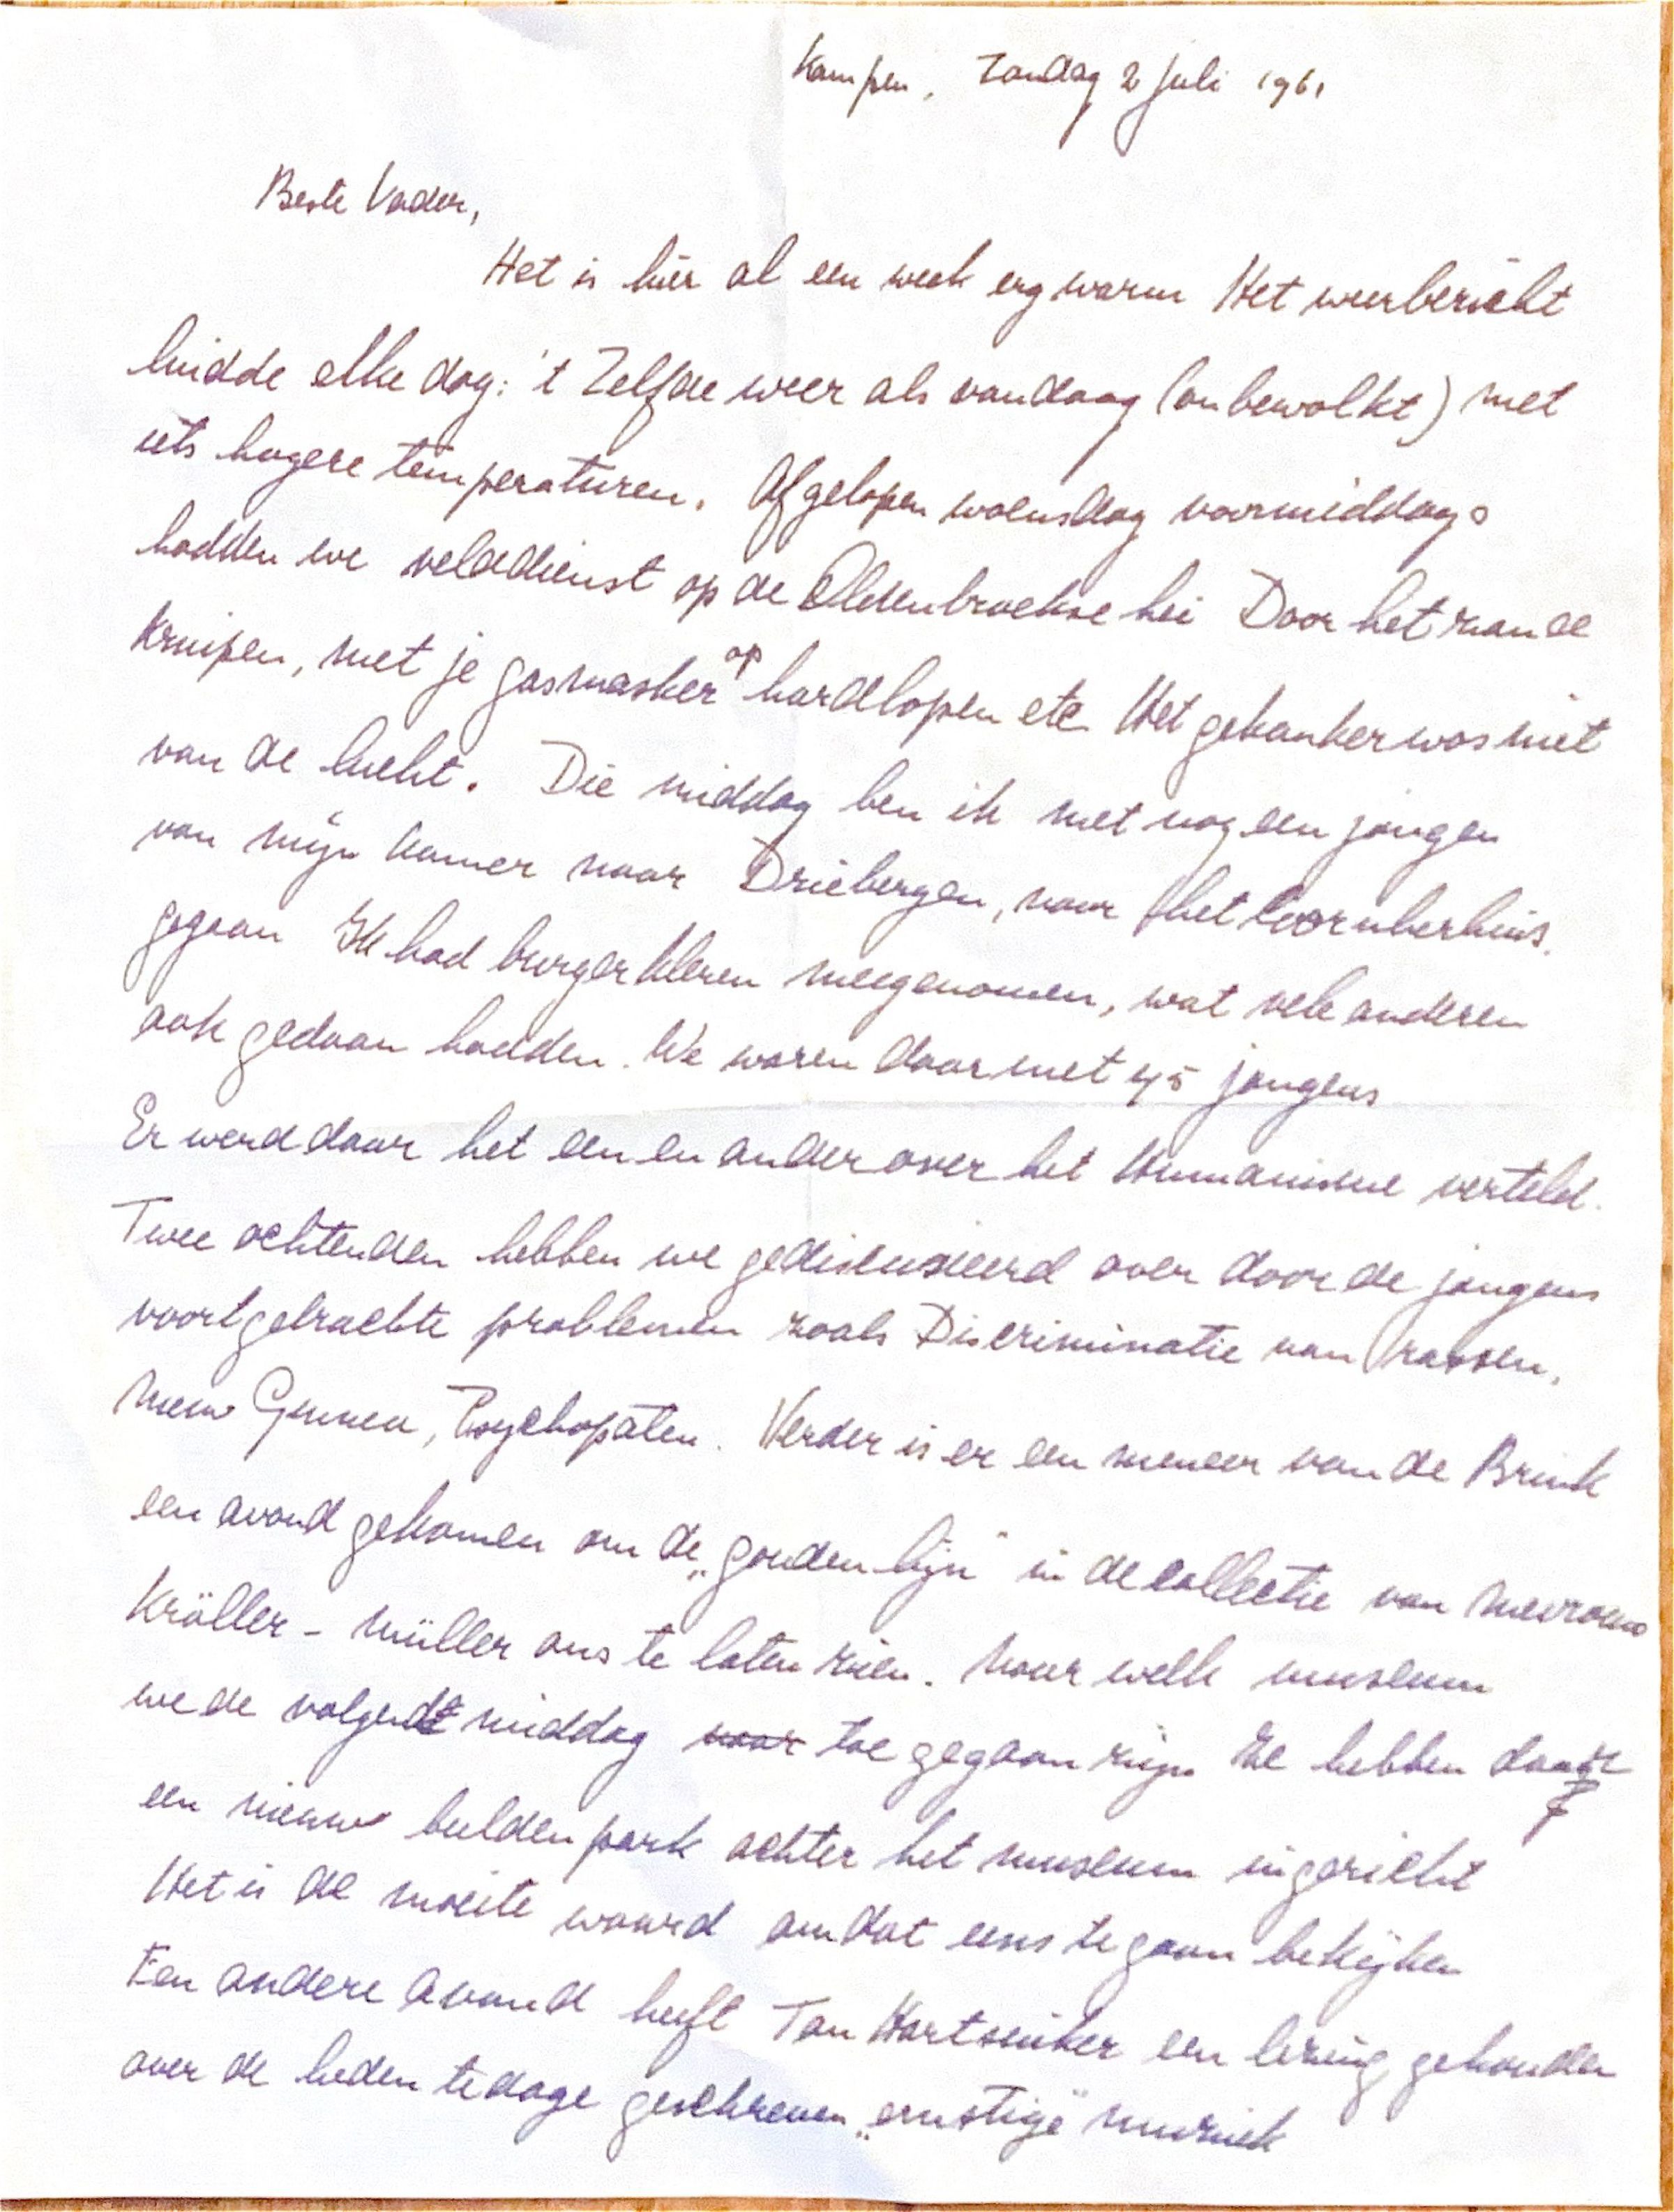 Kampen, Zondag 2 juli 1961
Beste Vader,
Het is hier al een week erg warm Het weerbericht
luidde elke dag: 't Zelfde weer als vandaag (onbewolkt) met
iets hogere temperaturen. Afgelopen woensdag voormiddag
hadden we velddienst op de Oldenbroekse hei Door het zand
kruipen, met je gasmasker op hardlopen etc Het gekanker was niet
van de lucht. Die middag ben ik met nog een jongen
van mijn kamer naar Driebergen, naar het Coornherhuis.
gegaan Ik had burgerkleren meegenomen, wat vele anderen
ook gedaan hadden. We waren daar met 45 jongens
Er werd daar het een en ander over het Humanisme verteld.
Twee ochtenden hebben we gediscussieerd over door de jongens
voortgebrachte problemen zoals Discriminatie van rassen,
Nieuw Guinea, Psychopaten. Verder is er een meneer van de Brink
een avond gekomen om de „gouden lijn" in de collectie van mevrouw
Kröller - Müller ons te laten zien. Naar welk museum
we de volgende middag naar toe gegaan zijn Ze hebben daar
een nieuw beeldenpark achter het museum ingericht
Het is de moeite waard om dat eens te gaan bekijken
Een andere avond heeft Ton Hartsuiker een lezing gehouden
over de heden ten dage geschreven „ernstige" muziek